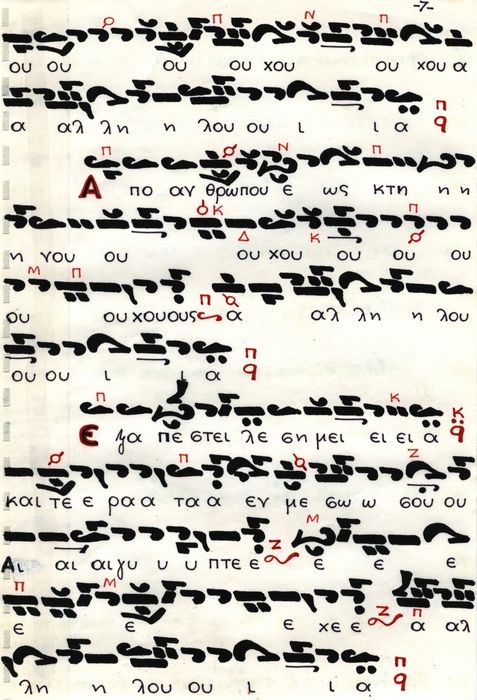 -7-
ου ου ου ου χου ου χου α
α αλ λη η λου ου ι ι α
Α πο αν θρωπου ε ως κτη η η
η νου ου ου χου ου ου ου
ου ου χουους α αλ λη η λου
ου ου ι ι α
Ε ξα πε στει λε ση μει ει ει α
και τε ε ραα τα α εν με σω ω σου ου
Αι αι αιγυ υ υ πτε ε ε ε ε ε
ε ε ε χε ε α αλ
λη η λου ου ι ι α